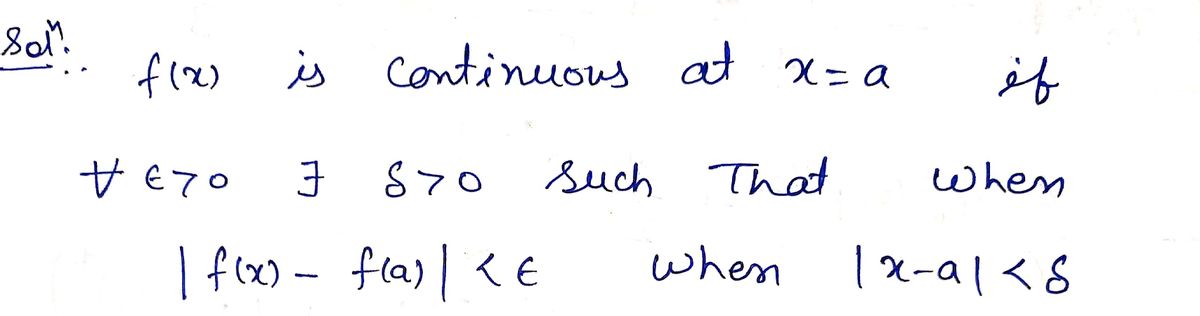 Solⁿ:.
f(x) is continuous at x = a if
∀ ϵ>0 ∃ δ>0 such That when
|f(x) - f(a)| < ϵ when |x-a| < δ